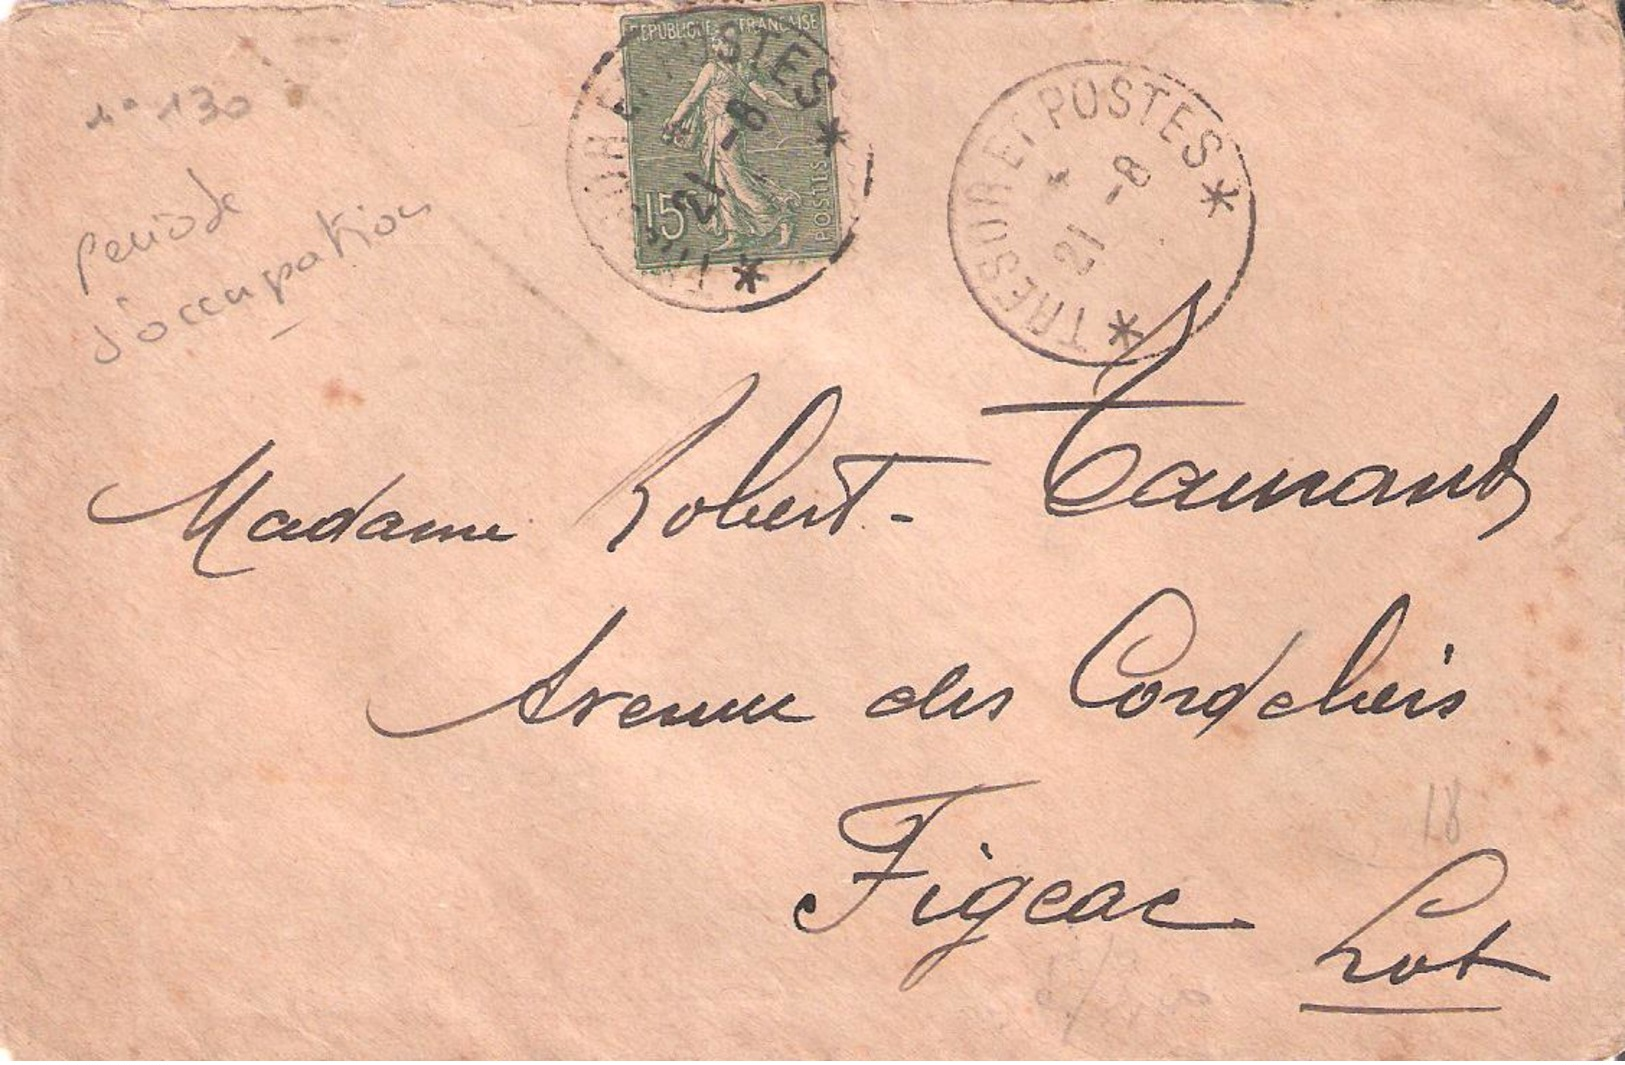 n° 130
période
d'occupation
REPUBLIQUE FRANÇAISE
15c
POSTES
TRESOR ET POSTES
21 -8
TRESOR ET POSTES
21 -8
Madame Robert-
Avenue des Cordeliers
Figeac
Lot
18